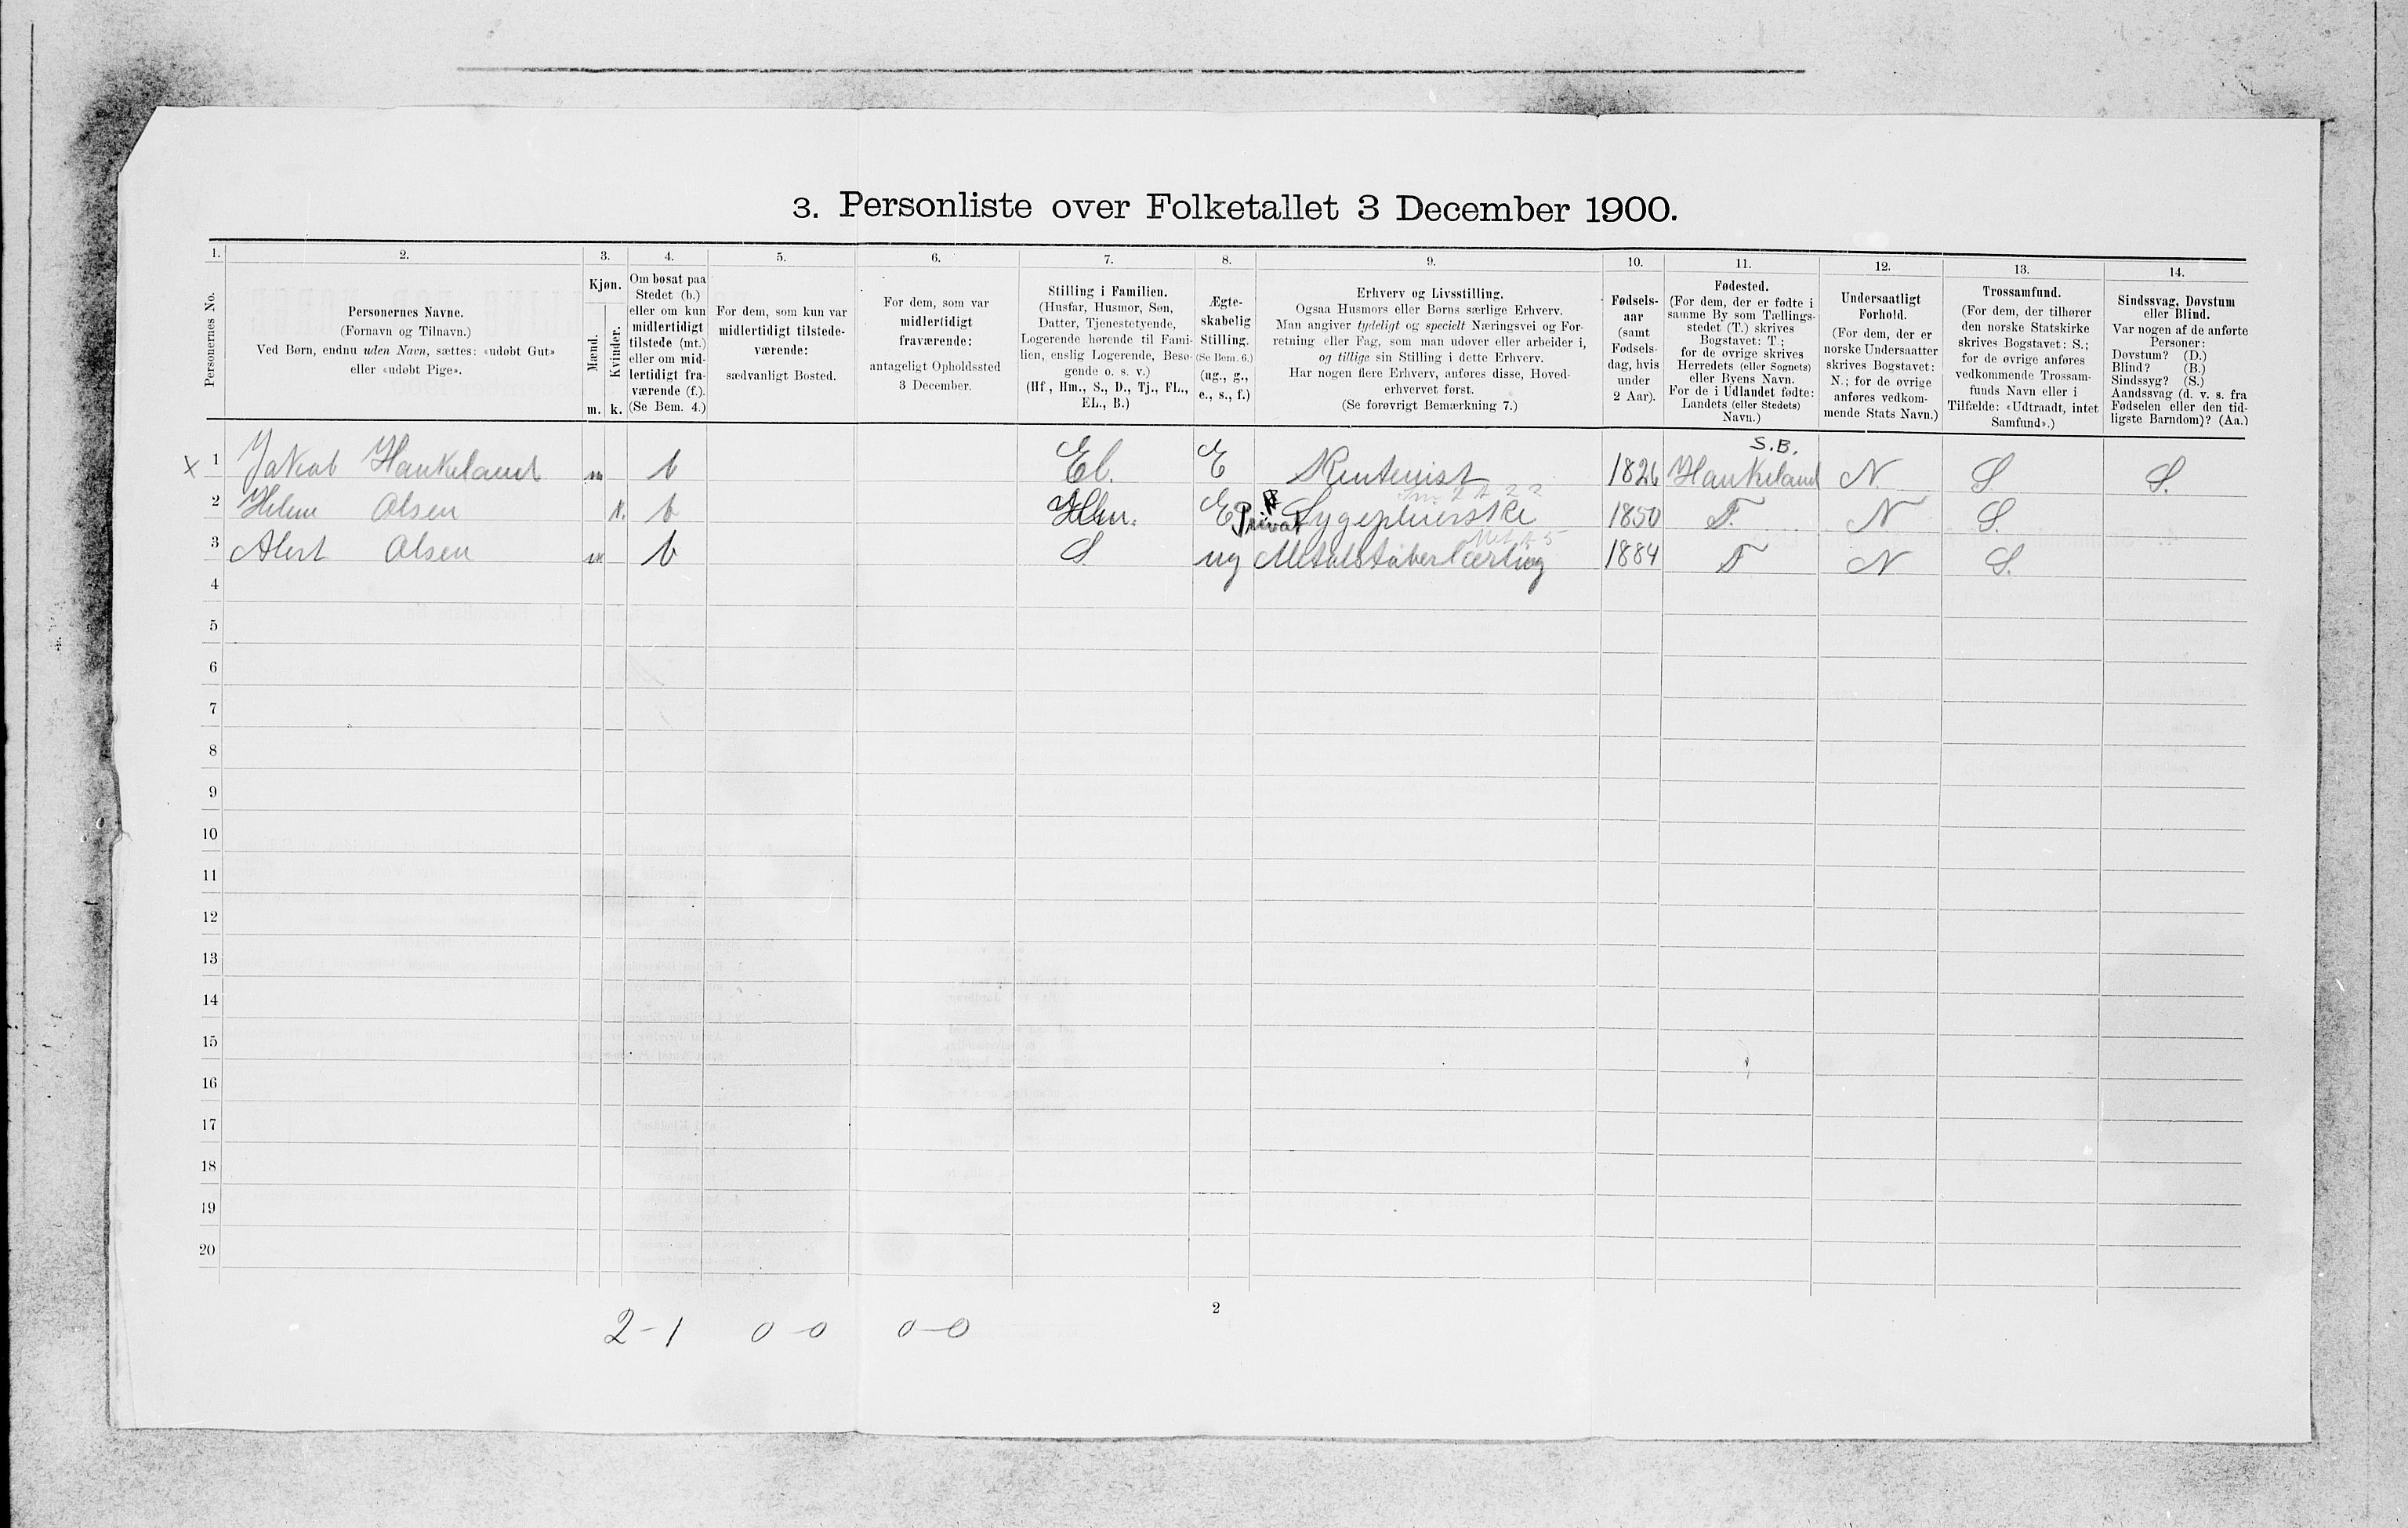 3. Personliste over Folketallet 3 December 1900.
1. 2. 3. 4. 5. 6. 7. 8. 9. 10. 11. 12. 13. 14.
Personernes No.
Personernes Navne.
(Fornavn og Tilnavn.)
Ved Børn, endnu uden Navn, sættes: «udøbt Gut»
eller «udøbt Pige».
Kjøn.
Mænd.
Kvinder.
m. k.
Om bosat paa
Stedet (b.)
eller om kun
midlertidigt
tilstede (mt.)
eller om mid-
lertidigt fra-
værende (f.).
(Se Bem. 4.)
For dem, som kun var
midlertidigt tilstede-
værende:
sædvanligt Bosted.
For dem, som var
midlertidigt
fraværende:
antageligt Opholdssted
3 December.
Stilling i Familien.
(Husfar, Husmor, Søn,
Datter, Tjenestetyende,
Logerende hørende til Fami-
lien, enslig Logerende, Besø-
gende o. s. v.)
(Hf., Hm., S., D., Tj., FL.,
EL., B.)
Ægte-
skabelig
Stilling.
(Se Bem. 6.)
(ug., g.,
e., s., f.)
Erhverv og Livsstilling.
Ogsaa Husmors eller Børns særlige Erhverv.
Man angiver tydeligt og specielt Næringsvei og For-
retning eller Fag, som man udøver eller arbeider i,
og tillige sin Stilling i dette Erhverv.
Har nogen flere Erhverv, anføres disse, Hoved-
erhvervet først.
(Se forøvrigt Bemærkning 7.)
Fødsels-
aar
(samt
Fødsels-
dag, hvis
under
2 Aar).
Fødested.
(For dem, der er fødte i
samme By som Tællings-
stedet (T.) skrives
Bogstavet: T.;
for de øvrige skrives
Herredets (eller Sognets)
eller Byens Navn.
For de i Udlandet fødte:
Landets (eller Stedets)
Navn.)
Undersaatligt
Forhold.
(For dem, der er
norske Undersaatter
skrives Bogstavet:
N.; for de øvrige
anføres vedkom-
mende Stats Navn.)
Trossamfund.
(For dem, der tilhører
den norske Statskirke
skrives Bogstavet: S.;
for de øvrige anføres
vedkommende Trossam-
funds Navn eller i
Tilfælde: «Udtraadt, intet
Samfund».)
Sindssvag, Døvstum
eller Blind.
Var nogen af de anførte
Personer:
Døvstum? (D.)
Blind? (B.)
Sindssyg? (S.)
Aandssvag (d. v. s. fra
Fødselen eller den tid-
ligste Barndom)? (Aa.)
S.B.
X 1 Jakob Haukeland m b El. E Rentenist 1826 Haukeland N. S. S.
2 Helene Olsen k. b Hm. E Privat Sygepleierske 1850 T. N S.
3 Alert Olsen m b S ug Metalstøberlærling 1884 T N S.
4
5
6
7
8
9
10
11
12
13
14
15
16
17
18
19
20
2
2-1 0-0 0-0